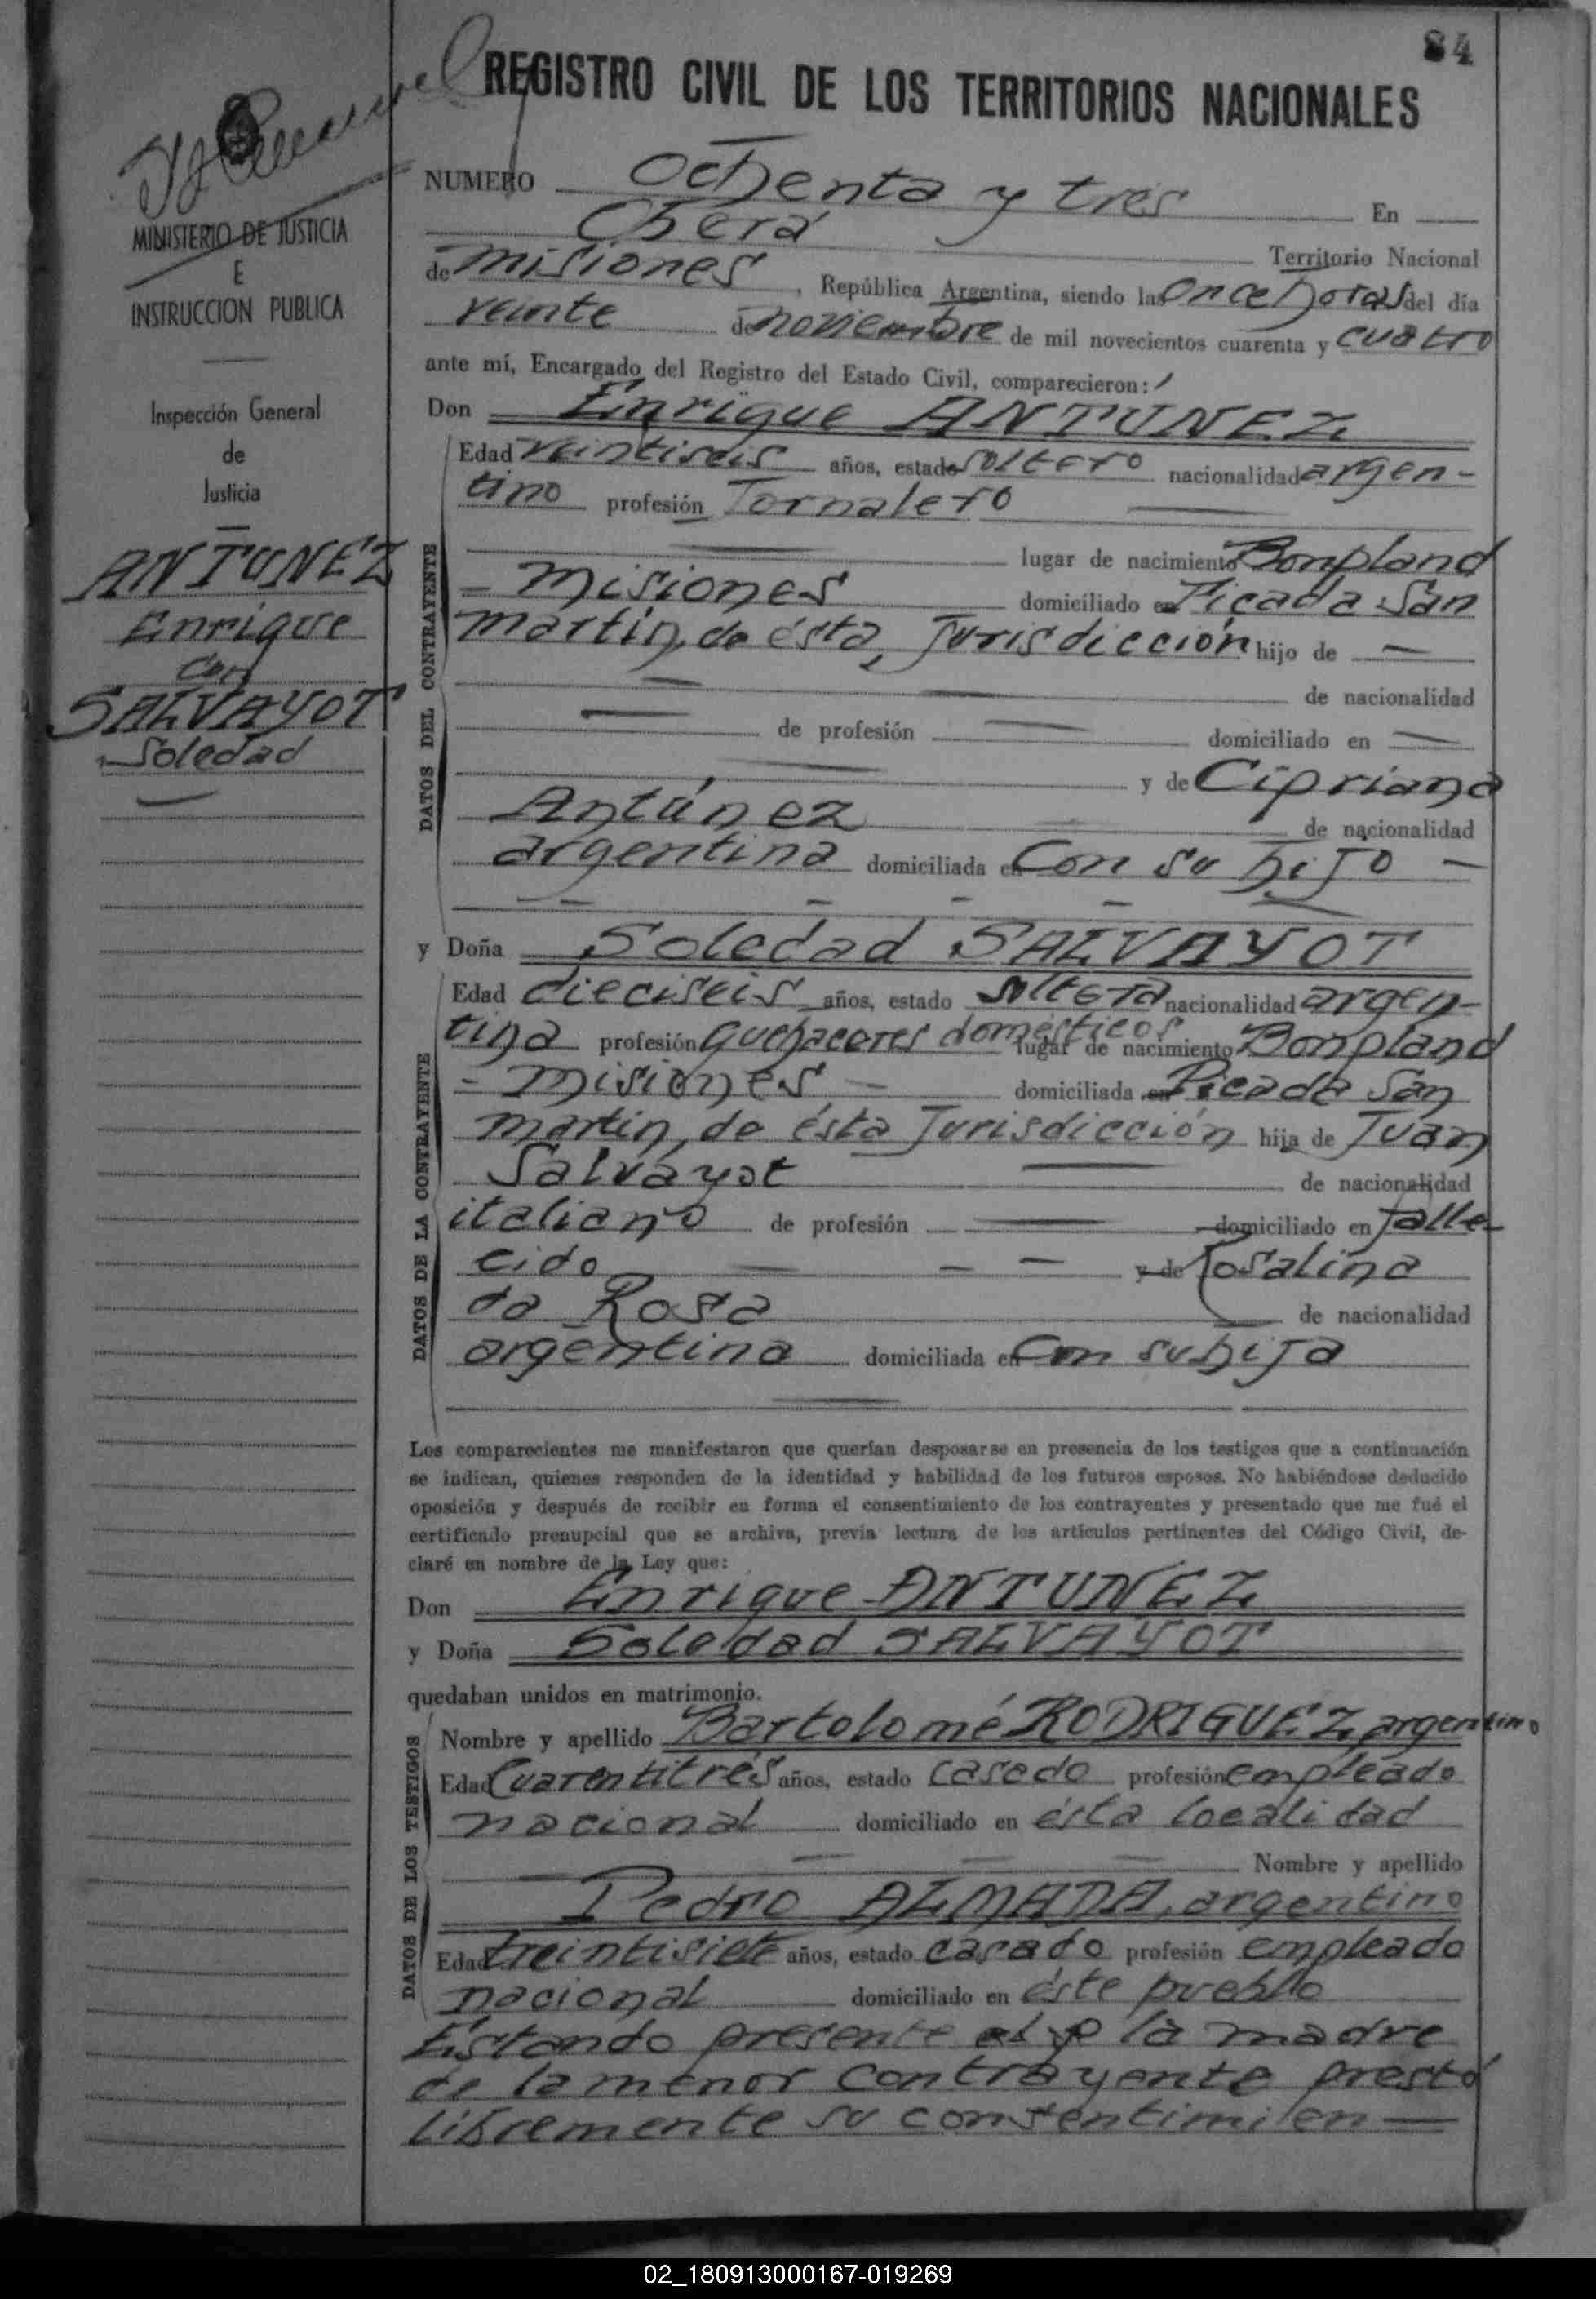 84
REGISTRO CIVIL DE LOS TERRITORIOS NACIONALES
MINISTERIO DE JUSTICIA
E
INSTRUCCION PUBLICA
Inspección General
de
Justicia
ANTUNEZ
Enrique
con
SALVAYOT
Soledad
NUMERO Ochenta y tres En
Oberá Territorio Nacional
de misiones, República Argentina, siendo las once horas del día
veinte de noviembre de mil novecientos cuarenta y cuatro
ante mí, Encargado del Registro del Estado Civil, comparecieron:
Don Enrique ANTUNEZ
DATOS DEL CONTRAYENTE
Edad veintiseis años, estado soltero nacionalidad argen-
tino profesión Jornalero
lugar de nacimiento Bonpland
- misiones domiciliado en Picada San
martin, de ésta, Jurisdicción hijo de —
de nacionalidad
— de profesión — domiciliado en —
y de Cipriana
Antúnez de nacionalidad
argentina domiciliada en Con su hijo —
y Doña Soledad SALVAYOT
DATOS DE LA CONTRAYENTE
Edad dieciseis años, estado soltera nacionalidad argen-
tina profesión quehaceres domésticos lugar de nacimiento Bonpland
- misiones — domiciliada en Picada San
martin, de ésta Jurisdicción hija de Juan
Salvayot de nacionalidad
italiano de profesión — domiciliado en falle-
cido — y de Rosalina
da Rosa de nacionalidad
argentina domiciliada en Con su hija
Los comparecientes me manifestaron que querían desposarse en presencia de los testigos que a continuación
se indican, quienes responden de la identidad y habilidad de los futuros esposos. No habiéndose deducido
oposición y después de recibir en forma el consentimiento de los contrayentes y presentado que me fué el
certificado prenupcial que se archiva, previa lectura de los artículos pertinentes del Código Civil, de-
claré en nombre de la Ley que:
Don Enrique ANTUNEZ
y Doña Soledad SALVAYOT
quedaban unidos en matrimonio.
DATOS DE LOS TESTIGOS
Nombre y apellido Bartolomé RODRIGUEZ, argentino
Edad Cuarentitrés años, estado casado profesión empleado
nacional domiciliado en ésta localidad
Nombre y apellido
Pedro ALMADA, argentino
Edad treintisiete años, estado casado profesión empleado
nacional domiciliado en éste pueblo
Estando presente la madre
de la menor contrayente prestó
libremente su consentimien—
02_180913000167-019269